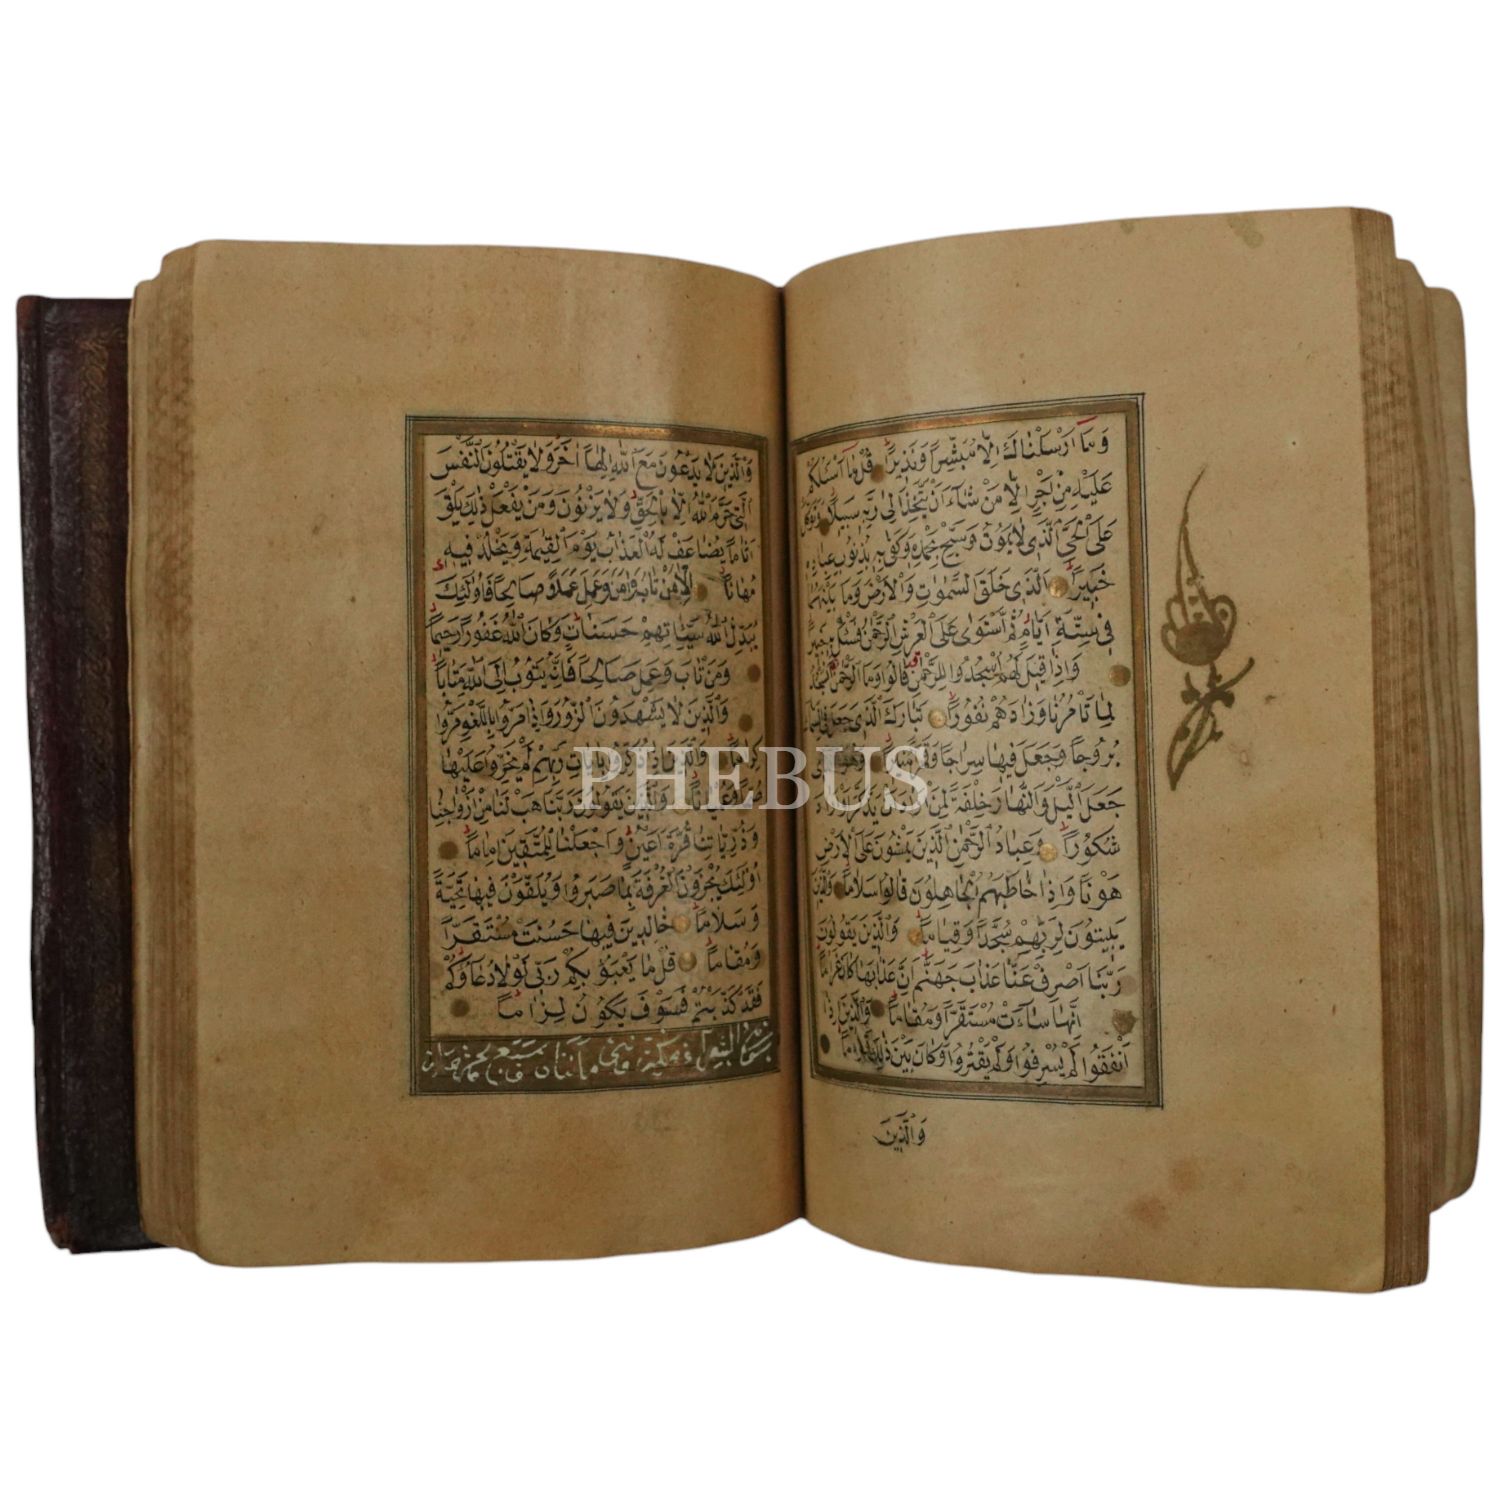 وَمَا اَرْسَلْنَاكَ اِلَّا مُبَشِّرًا وَنَذِيرًا قُلْ مَا اَسْئَلُكُمْ
عَلَيْهِ مِنْ اَجْرٍ اِلَّا مَنْ شَاءَ اَنْ يَتَّخِذَ اِلٰى رَبِّهِ سَبِيلًا وَتَوَكَّلْ
عَلَى الْحَيِّ الَّذِي لَا يَمُوتُ وَسَبِّحْ بِحَمْدِهِ وَكَفٰى بِهِ بِذُنُوبِ عِبَادِهِ
خَبِيرًا الَّذِي خَلَقَ السَّمٰوَاتِ وَالْاَرْضَ وَمَا بَيْنَهُمَا
فِي سِتَّةِ اَيَّامٍ ثُمَّ اسْتَوٰى عَلَى الْعَرْشِ الرَّحْمٰنُ فَسْئَلْ بِهِ خَبِيرًا
وَاِذَا قِيلَ لَهُمُ اسْجُدُوا لِلرَّحْمٰنِ قَالُوا وَمَا الرَّحْمٰنُ اَنَسْجُدُ
لِمَا تَأْمُرُنَا وَزَادَهُمْ نُفُورًا تَبَارَكَ الَّذِي جَعَلَ فِي السَّمَاءِ
بُرُوجًا وَجَعَلَ فِيهَا سِرَاجًا وَقَمَرًا مُنِيرًا وَهُوَ الَّذِي
جَعَلَ الَّيْلَ وَالنَّهَارَ خِلْفَةً لِمَنْ اَرَادَ اَنْ يَذَّكَّرَ اَوْ اَرَادَ
شُكُورًا وَعِبَادُ الرَّحْمٰنِ الَّذِينَ يَمْشُونَ عَلَى الْاَرْضِ
هَوْنًا وَاِذَا خَاطَبَهُمُ الْجَاهِلُونَ قَالُوا سَلَامًا وَالَّذِينَ
يَبِيتُونَ لِرَبِّهِمْ سُجَّدًا وَقِيَامًا وَالَّذِينَ يَقُولُونَ
رَبَّنَا اصْرِفْ عَنَّا عَذَابَ جَهَنَّمَ اِنَّ عَذَابَهَا كَانَ غَرَامًا
اِنَّهَا سَاءَتْ مُسْتَقَرًّا وَمُقَامًا وَالَّذِينَ اِذَا
اَنْفَقُوا لَمْ يُسْرِفُوا وَلَمْ يَقْتُرُوا وَكَانَ بَيْنَ ذٰلِكَ قَوَامًا
وَالَّذِينَ
وَالَّذِينَ لَا يَدْعُونَ مَعَ اللّٰهِ اِلٰهًا اٰخَرَ وَلَا يَقْتُلُونَ النَّفْسَ
الَّتِي حَرَّمَ اللّٰهُ اِلَّا بِالْحَقِّ وَلَا يَزْنُونَ وَمَنْ يَفْعَلْ ذٰلِكَ يَلْقَ
اَثَامًا يُضَاعَفْ لَهُ الْعَذَابُ يَوْمَ الْقِيٰمَةِ وَيَخْلُدْ فِيهِ
مُهَانًا اِلَّا مَنْ تَابَ وَاٰمَنَ وَعَمِلَ عَمَلًا صَالِحًا فَاُولٰئِكَ
يُبَدِّلُ اللّٰهُ سَيِّئَاتِهِمْ حَسَنَاتٍ وَكَانَ اللّٰهُ غَفُورًا رَحِيمًا
وَمَنْ تَابَ وَعَمِلَ صَالِحًا فَاِنَّهُ يَتُوبُ اِلَى اللّٰهِ مَتَابًا
وَالَّذِينَ لَا يَشْهَدُونَ الزُّورَ وَاِذَا مَرُّوا بِاللَّغْوِ مَرُّوا
كِرَامًا وَالَّذِينَ اِذَا ذُكِّرُوا بِاٰيَاتِ رَبِّهِمْ لَمْ يَخِرُّوا عَلَيْهَا
صُمًّا وَعُمْيَانًا وَالَّذِينَ يَقُولُونَ رَبَّنَا هَبْ لَنَا مِنْ اَزْوَاجِنَا
وَذُرِّيَّاتِنَا قُرَّةَ اَعْيُنٍ وَاجْعَلْنَا لِلْمُتَّقِينَ اِمَامًا
اُولٰئِكَ يُجْزَوْنَ الْغُرْفَةَ بِمَا صَبَرُوا وَيُلَقَّوْنَ فِيهَا تَحِيَّةً
وَسَلَامًا خَالِدِينَ فِيهَا حَسُنَتْ مُسْتَقَرًّا
وَمُقَامًا قُلْ مَا يَعْبَؤُا بِكُمْ رَبِّي لَوْلَا دُعَاؤُكُمْ
فَقَدْ كَذَّبْتُمْ فَسَوْفَ يَكُونُ لِزَامًا
مكية وهي مأتان
PHEBUS